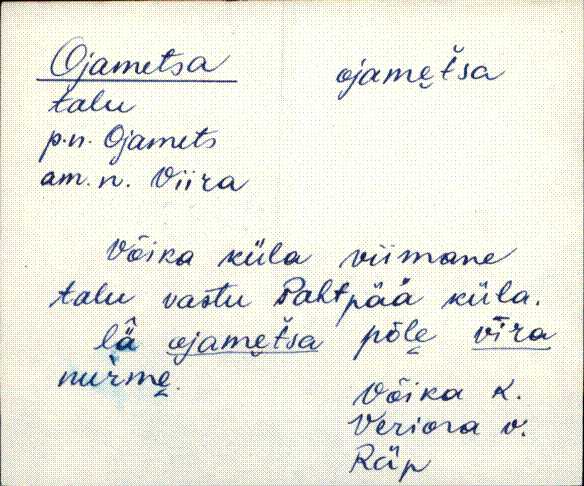 Ojametsa
ojamę̮tša
talu
p.n. Ojamets
am. n. Viira
Võika küla viimane
talu vastu Pahtpää küla.
lä̂ ojamę̮tša põlę̮ vīra
nurmę̮.
Võika k.
Veriora v.
Räp